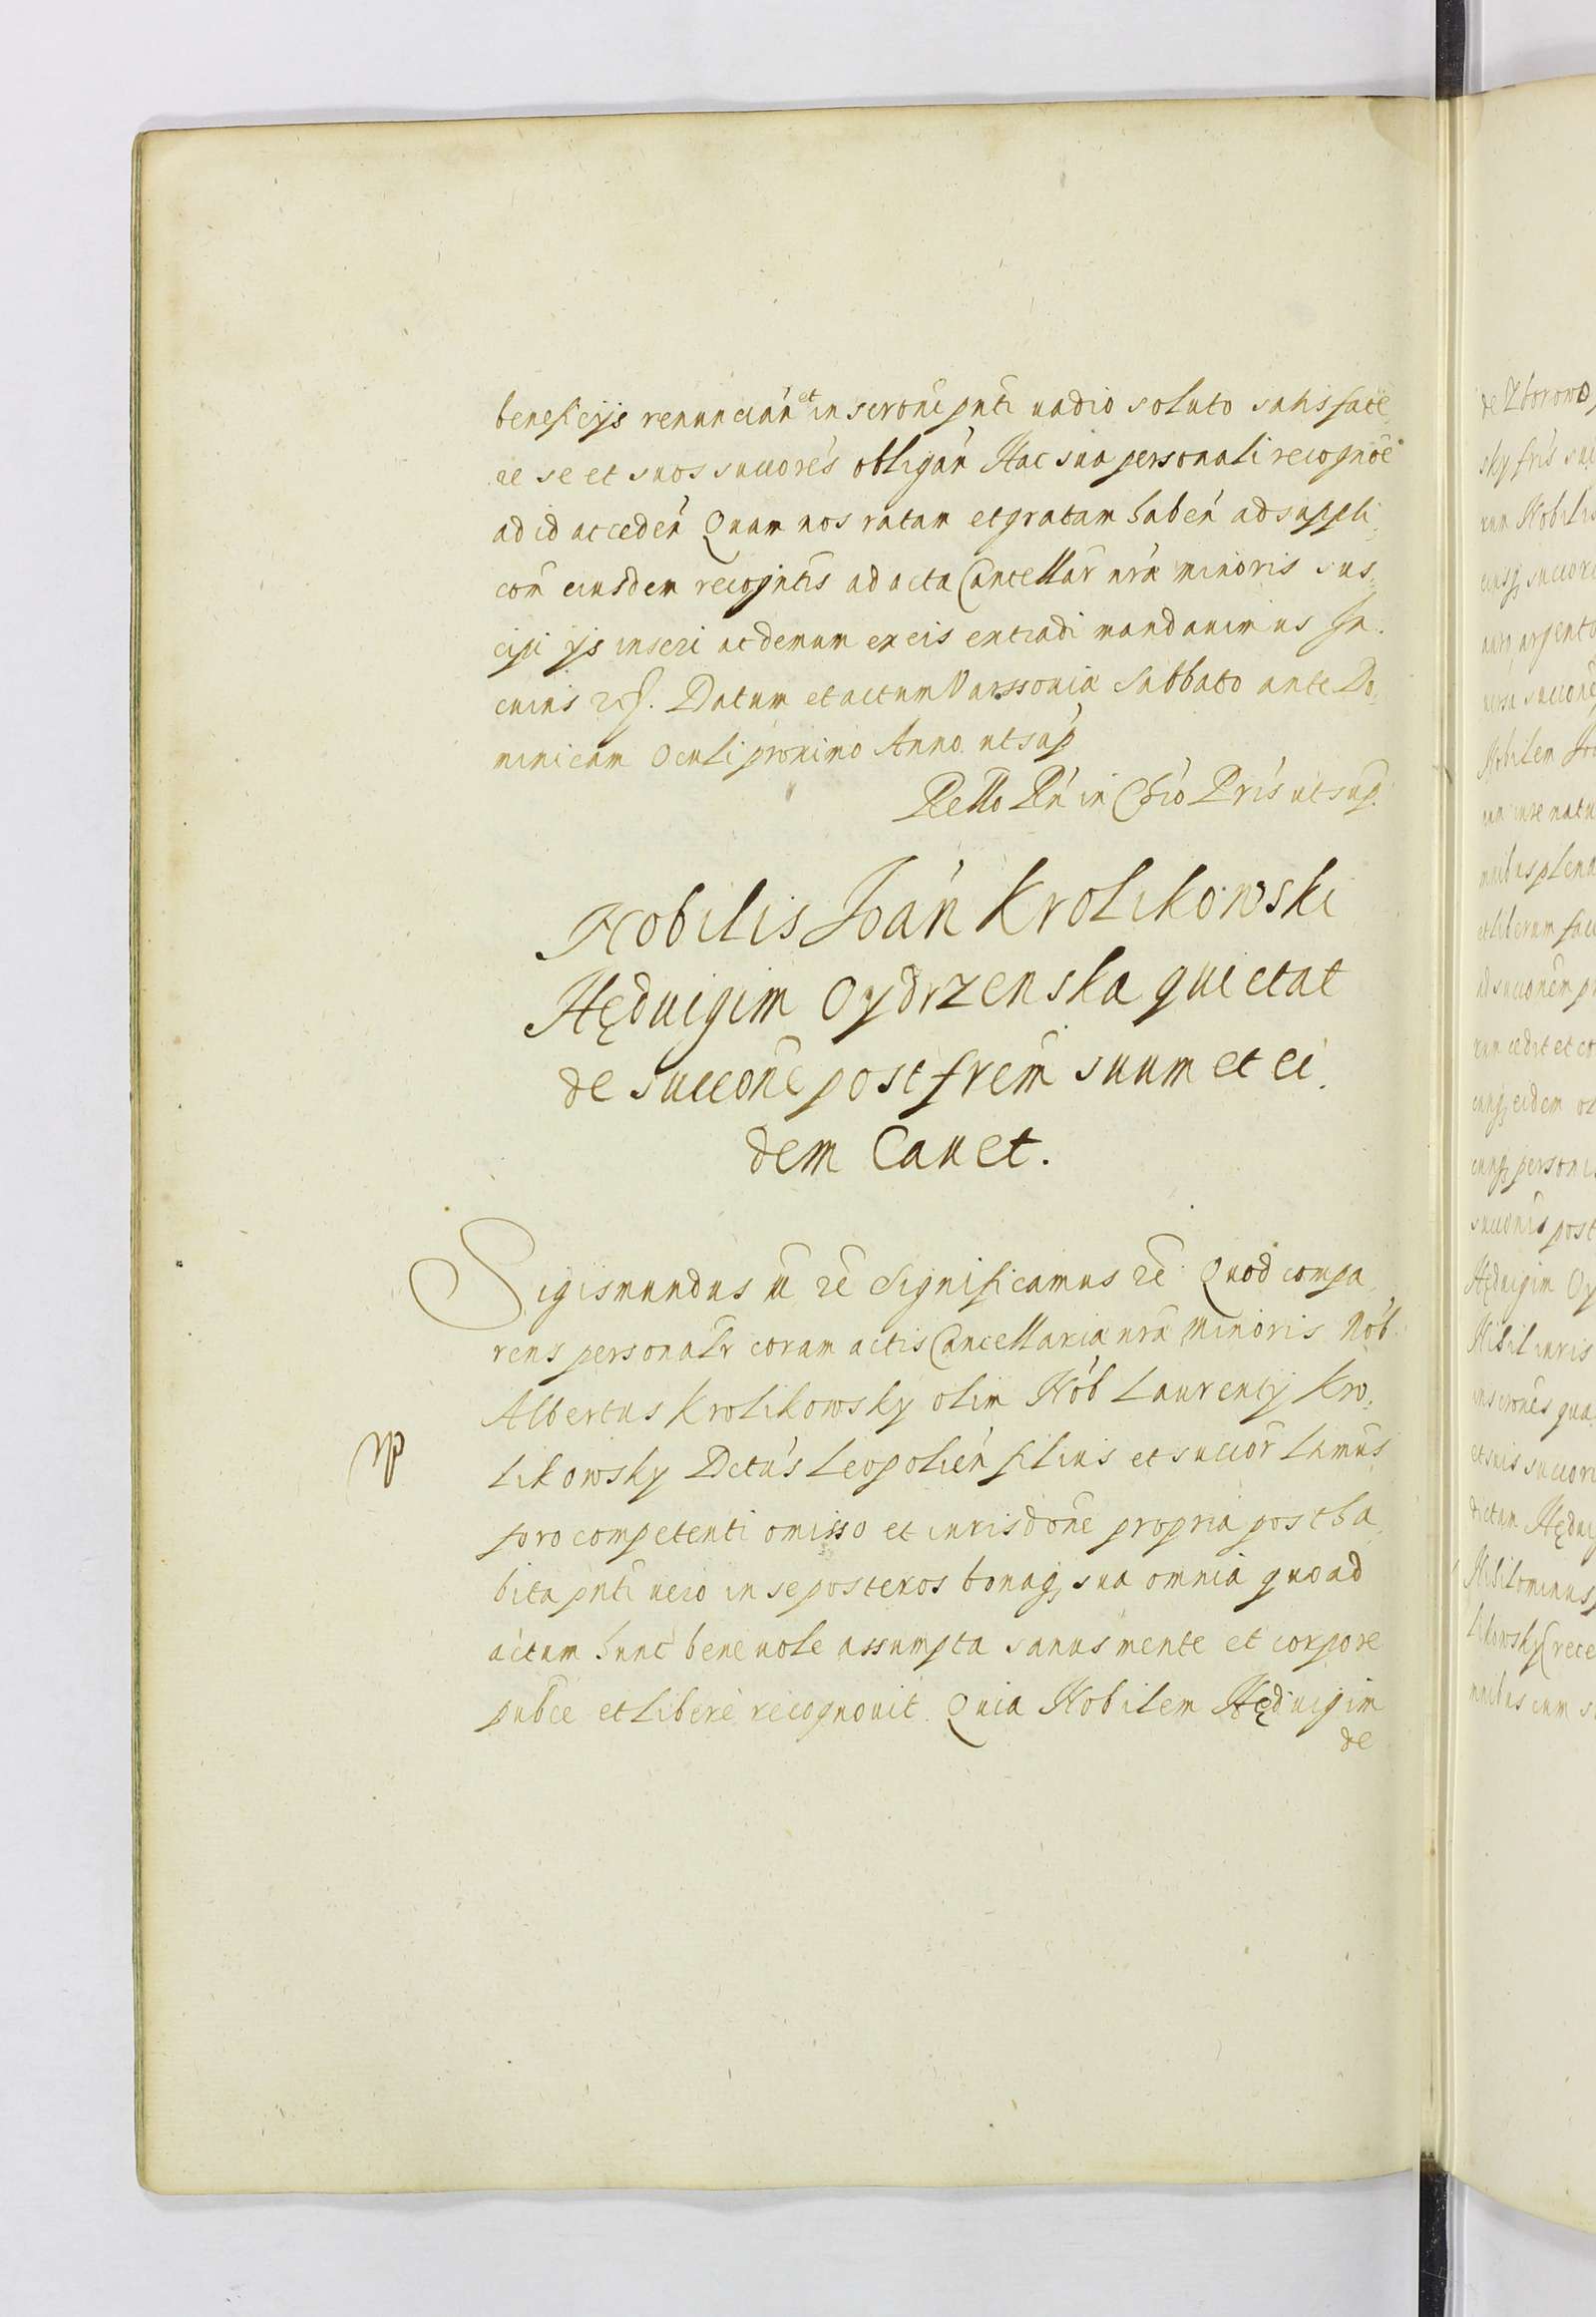 beneficijs renuncian̄ et inscrōni pn̄ti vadio soluto satisface
re se et suos succorēs obligan̄ Hac sua personali recognōe
ad id acceden̄ Quam nos ratam et gratam haben̄ ad suppli
cōm eiusdem recogn̄tis ad acta Cancellar nrā minoris sus
cipi ijs inseri ac demum ex eis extradi mandauimus In
cuius rei. Datum et actum Varssouia Sabbato ante Do
minicam Oculi proximo Anno ut sup̄
Rello Rn̄ in Chrō Prīs ut sup̄.
Nobilis Joan̄ Krolikowski
Hęduigim Oydrzenska quietat
de succōne post frēm suum et ei
dem Cauet.
Sigismundus n̄ rē Significamus rē Quod compa
rens personalr coram actis Cancellaria nrā Minoris Nob
Albertus Krolikowsky olim Nob Laurentij Kro
likowsky Leopolien̄ filius et succor̄
foro competenti omisso et iurisdōne propria postha
bita pn̄ti vero in se posteros bonaq; sua omnia quoad
actum hunc beneuole assumpta sanus mente et corpore
publce et libere recognouit Quia Nobilem Hęduigim
de
de Zborowo
sky fris suc
Nobilis
succor
auro, argento
succone
Nobilem
iure natu
mnibus plena
et liberum facu
ad succonem pr
rum cedit et co
cunq; eidem
cunq; personis
succonis post
Hęduigim Oy
Nihil iuris
inscrones qua
et suis succori
dictam Hędui
Nihilominus
likowsky rece
mnibus cum s